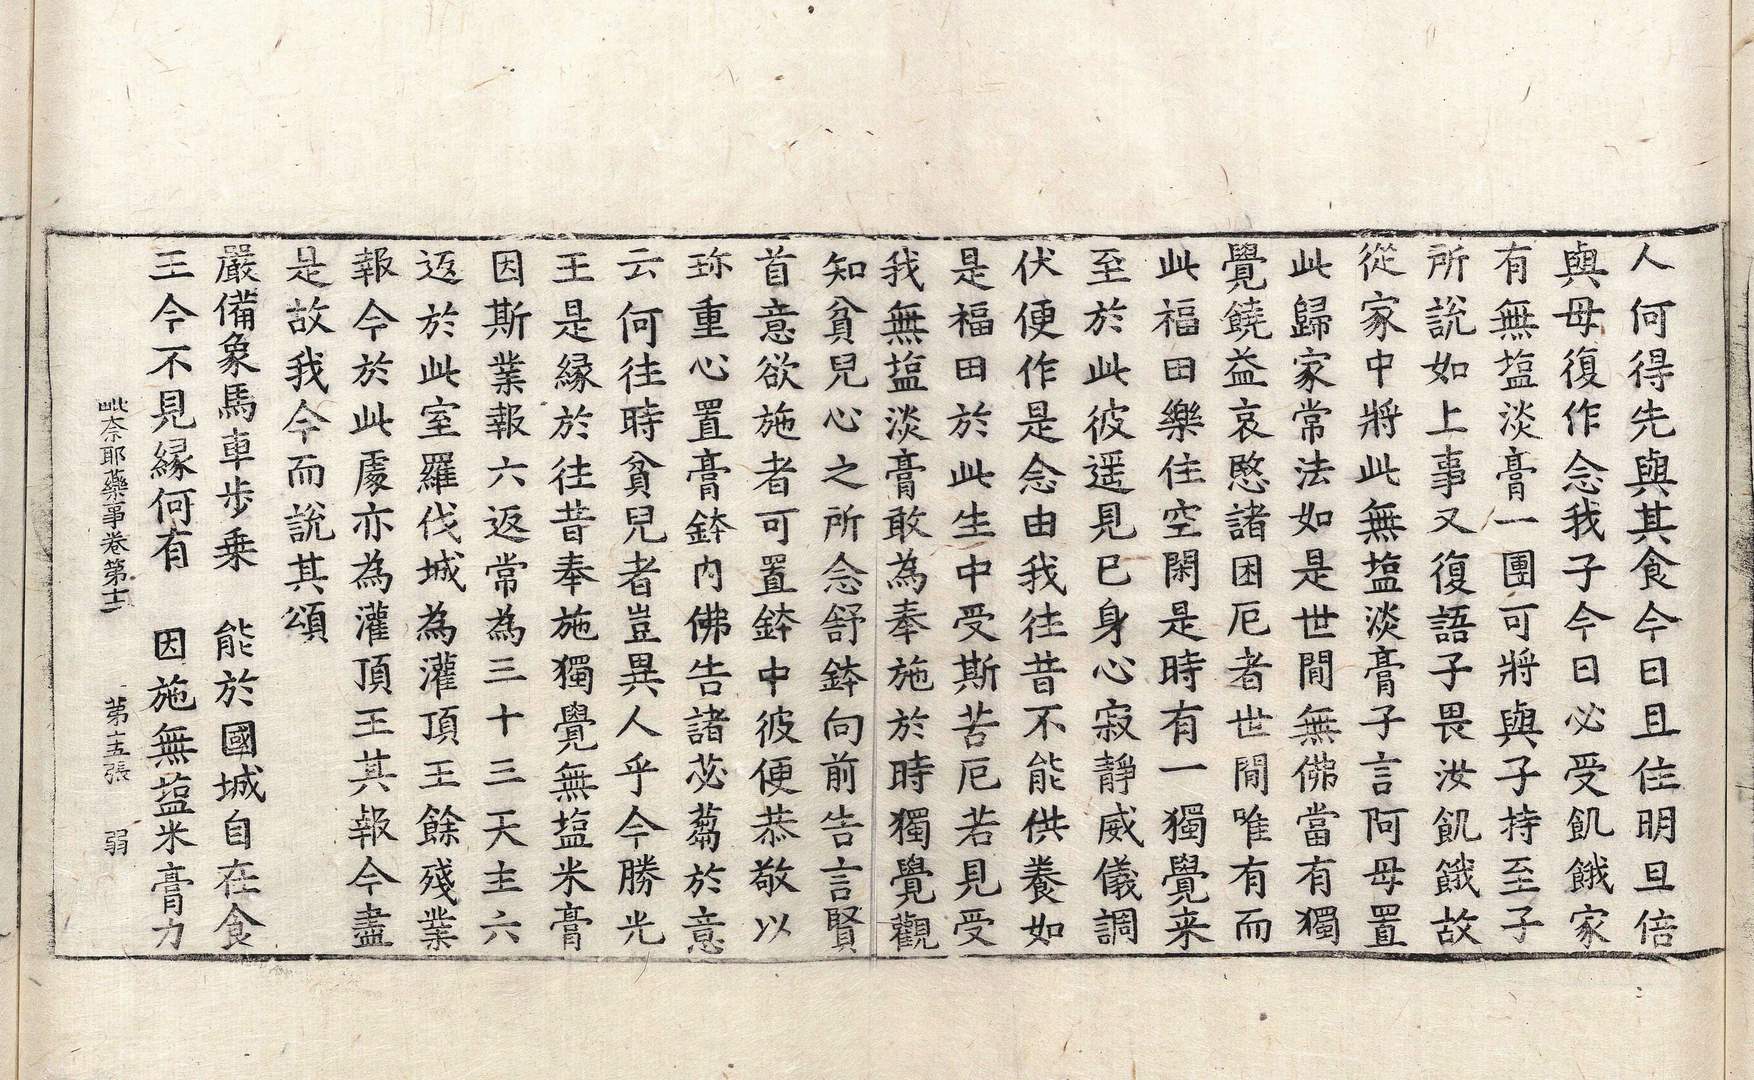 人何得先與其食今日且住明旦倍
與母復作念我子今日必受飢餓家
有無塩淡膏一團可將與子持至子
所說如上事又復語子畏汝飢餓故
從家中將此無塩淡膏子言阿母置
此歸家常法如是世閒無佛當有獨
覺饒益哀愍諸困厄者世閒唯有而
此福田樂住空閑是時有一獨覺来
至於此彼遥見已身心寂靜威儀調
伏便作是念由我往昔不能供養如
是福田於此生中受斯苦厄若見受
我無塩淡膏敢為奉施於時獨覺觀
知貧兒心之所念舒鉢向前告言賢
首意欲施者可置鉢中彼便恭敬以
珎重心置膏鉢内佛告諸苾蒭於意
云何往時貧兒者豈異人乎今勝光
王是緣於往昔奉施獨覺無塩米膏
因斯業報六返常為三十三天主六
返於此室羅伐城為灌頂王餘殘業
報今於此處亦為灌頂王其報今盡
是故我今而說其頌
嚴備象馬車步乗　能於國城自在食
王今不見緣何有　因施無塩米膏力
毗奈耶藥事卷第十二　第十五張　弱